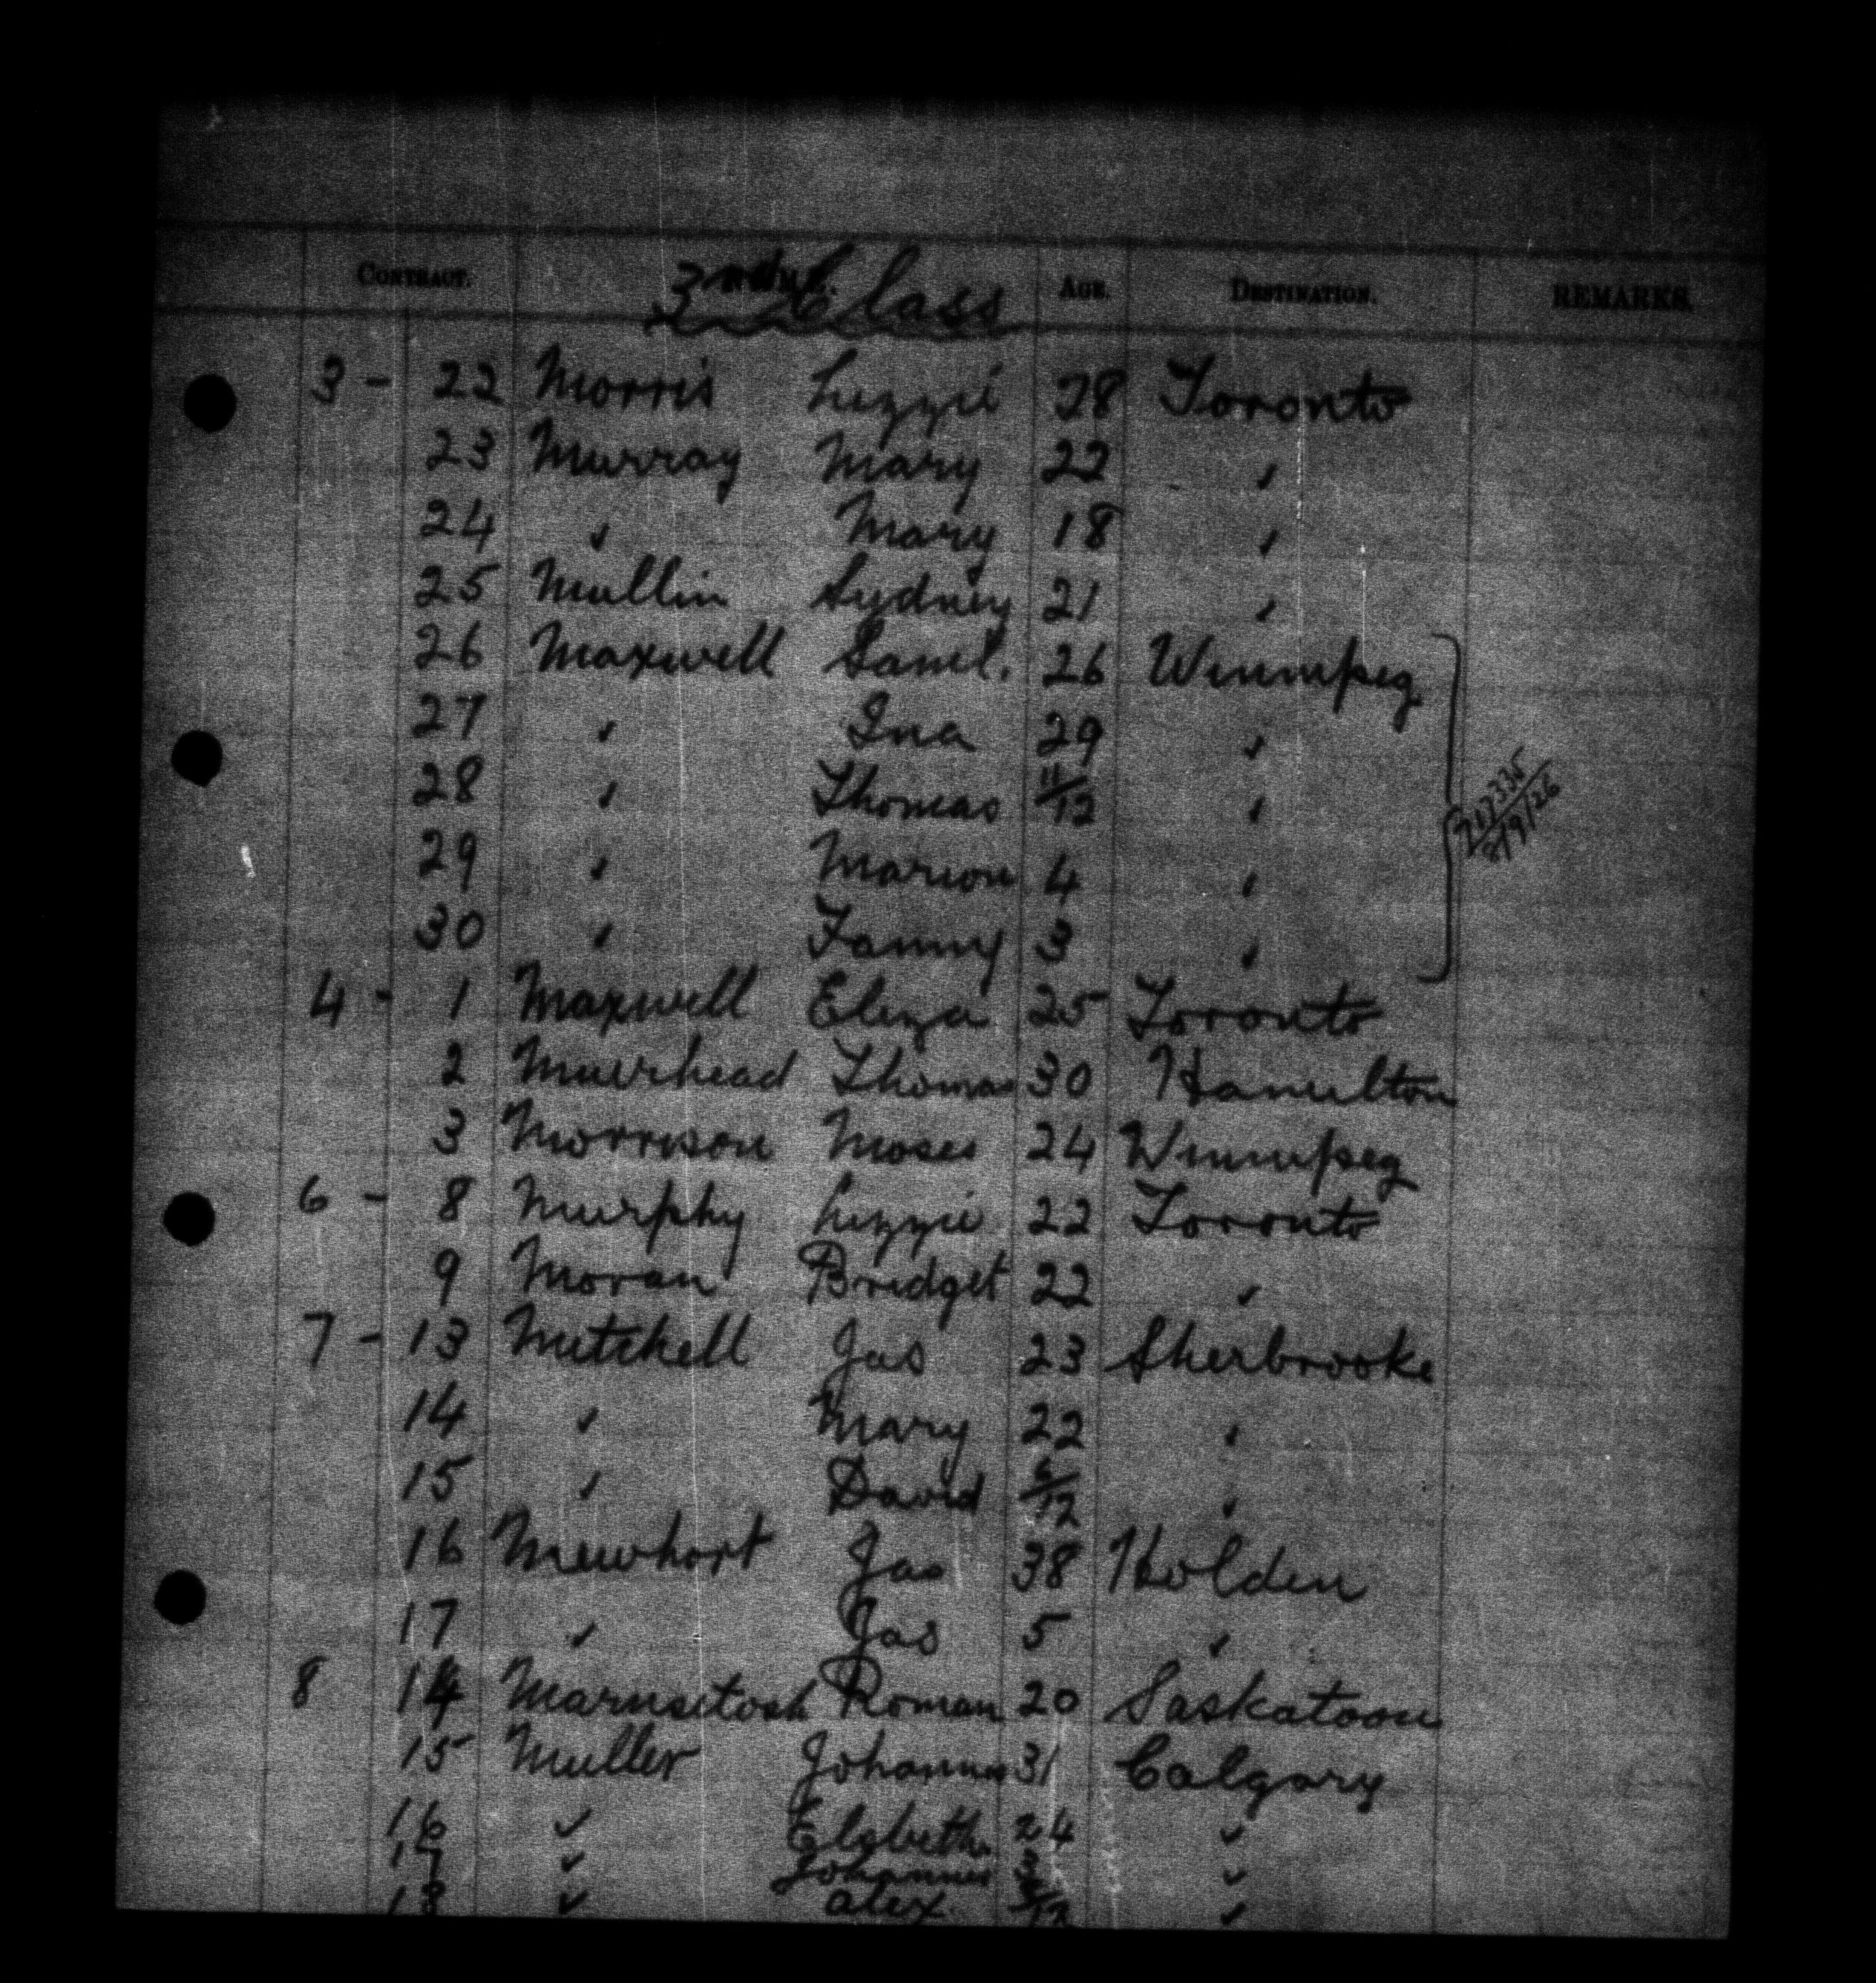 CONTRACT. NAME. AGE. DESTINATION. REMARKS.
3rd Class
3 - 22 Morris Lizzie 28 Toronto
23 Murray Mary 22 "
24 " Mary 18 "
25 Mullin Sydney 21 "
26 Maxwell Saml. 26 Winnipeg
27 " Ina 29 "
28 " Thomas 11/12 "
29 " Marion 4 "
30 " Fanny 3 "
4 - 1 Maxwell Eliza 25 Toronto
2 Muirhead Thomas 30 Hamilton
3 Morrison Moses 24 Winnipeg
6 - 8 Murphy Lizzie 22 Toronto
9 Moran Bridget 22 "
7 - 13 Mitchell Jas 23 Sherbrooke
14 " Mary 22 "
15 " David 6/12 "
16 Mewhort Jas 38 Holden
17 " Jas 5 "
8 14 Roman 20 Saskatoon
15 Muller Johannes 31 Calgary
16 " Elsbeth 24 "
17 " Johannes 3 "
18 " Alex. "